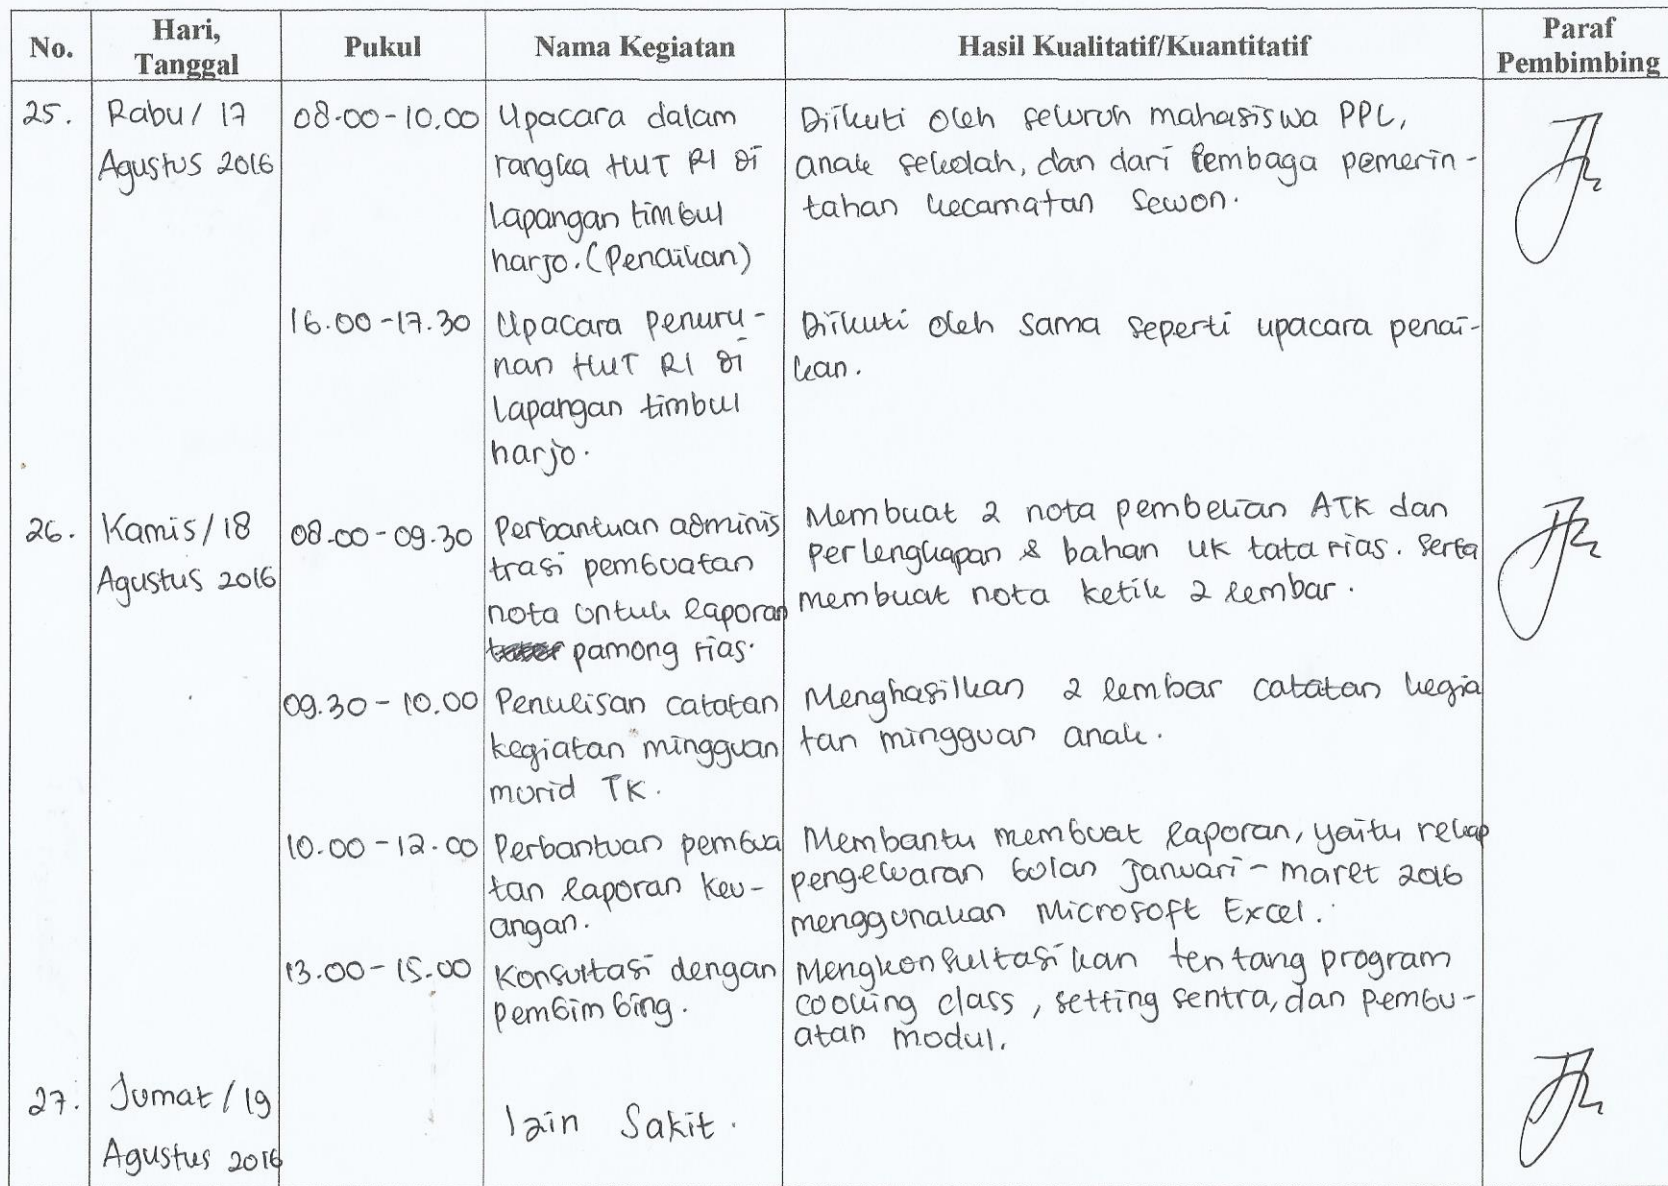 No. Hari, Tanggal Pukul Nama Kegiatan Hasil Kualitatif/Kuantitatif Paraf Pembimbing
25.
Rabu / 17
Agustus 2016
08.00 - 10.00
Upacara dalam
rangka HUT RI di
lapangan timbul
harjo. (Penaikan)
Diikuti oleh seluruh mahasiswa PPL,
anak sekolah, dan dari lembaga pemerin-
tahan kecamatan Sewon.
16.00 - 17.30
Upacara penuru-
nan HUT RI di
lapangan timbul
harjo.
Diikuti oleh sama seperti upacara penai-
kan.
26.
Kamis / 18
Agustus 2016
08.00 - 09.30
Perbantuan adminis
trasi pembuatan
nota untuk laporan
pamong rias.
Membuat 2 nota pembelian ATK dan
perlengkapan & bahan UK tata rias. Serta
membuat nota ketik 2 lembar.
09.30 - 10.00
Penulisan catatan
kegiatan mingguan
murid TK.
Menghasilkan 2 lembar catatan kegia
tan mingguan anak.
10.00 - 12.00
Perbantuan pembua
tan laporan keu-
angan.
Membantu membuat laporan, yaitu rekap
pengeluaran bulan Januari - maret 2016
menggunakan Microsoft Excel.
13.00 - 15.00
Konsultasi dengan
pembimbing.
Mengkonsultasikan tentang program
cooking class, setting sentra, dan pembu-
atan modul.
27.
Jumat / 19
Agustus 2016
Izin Sakit.